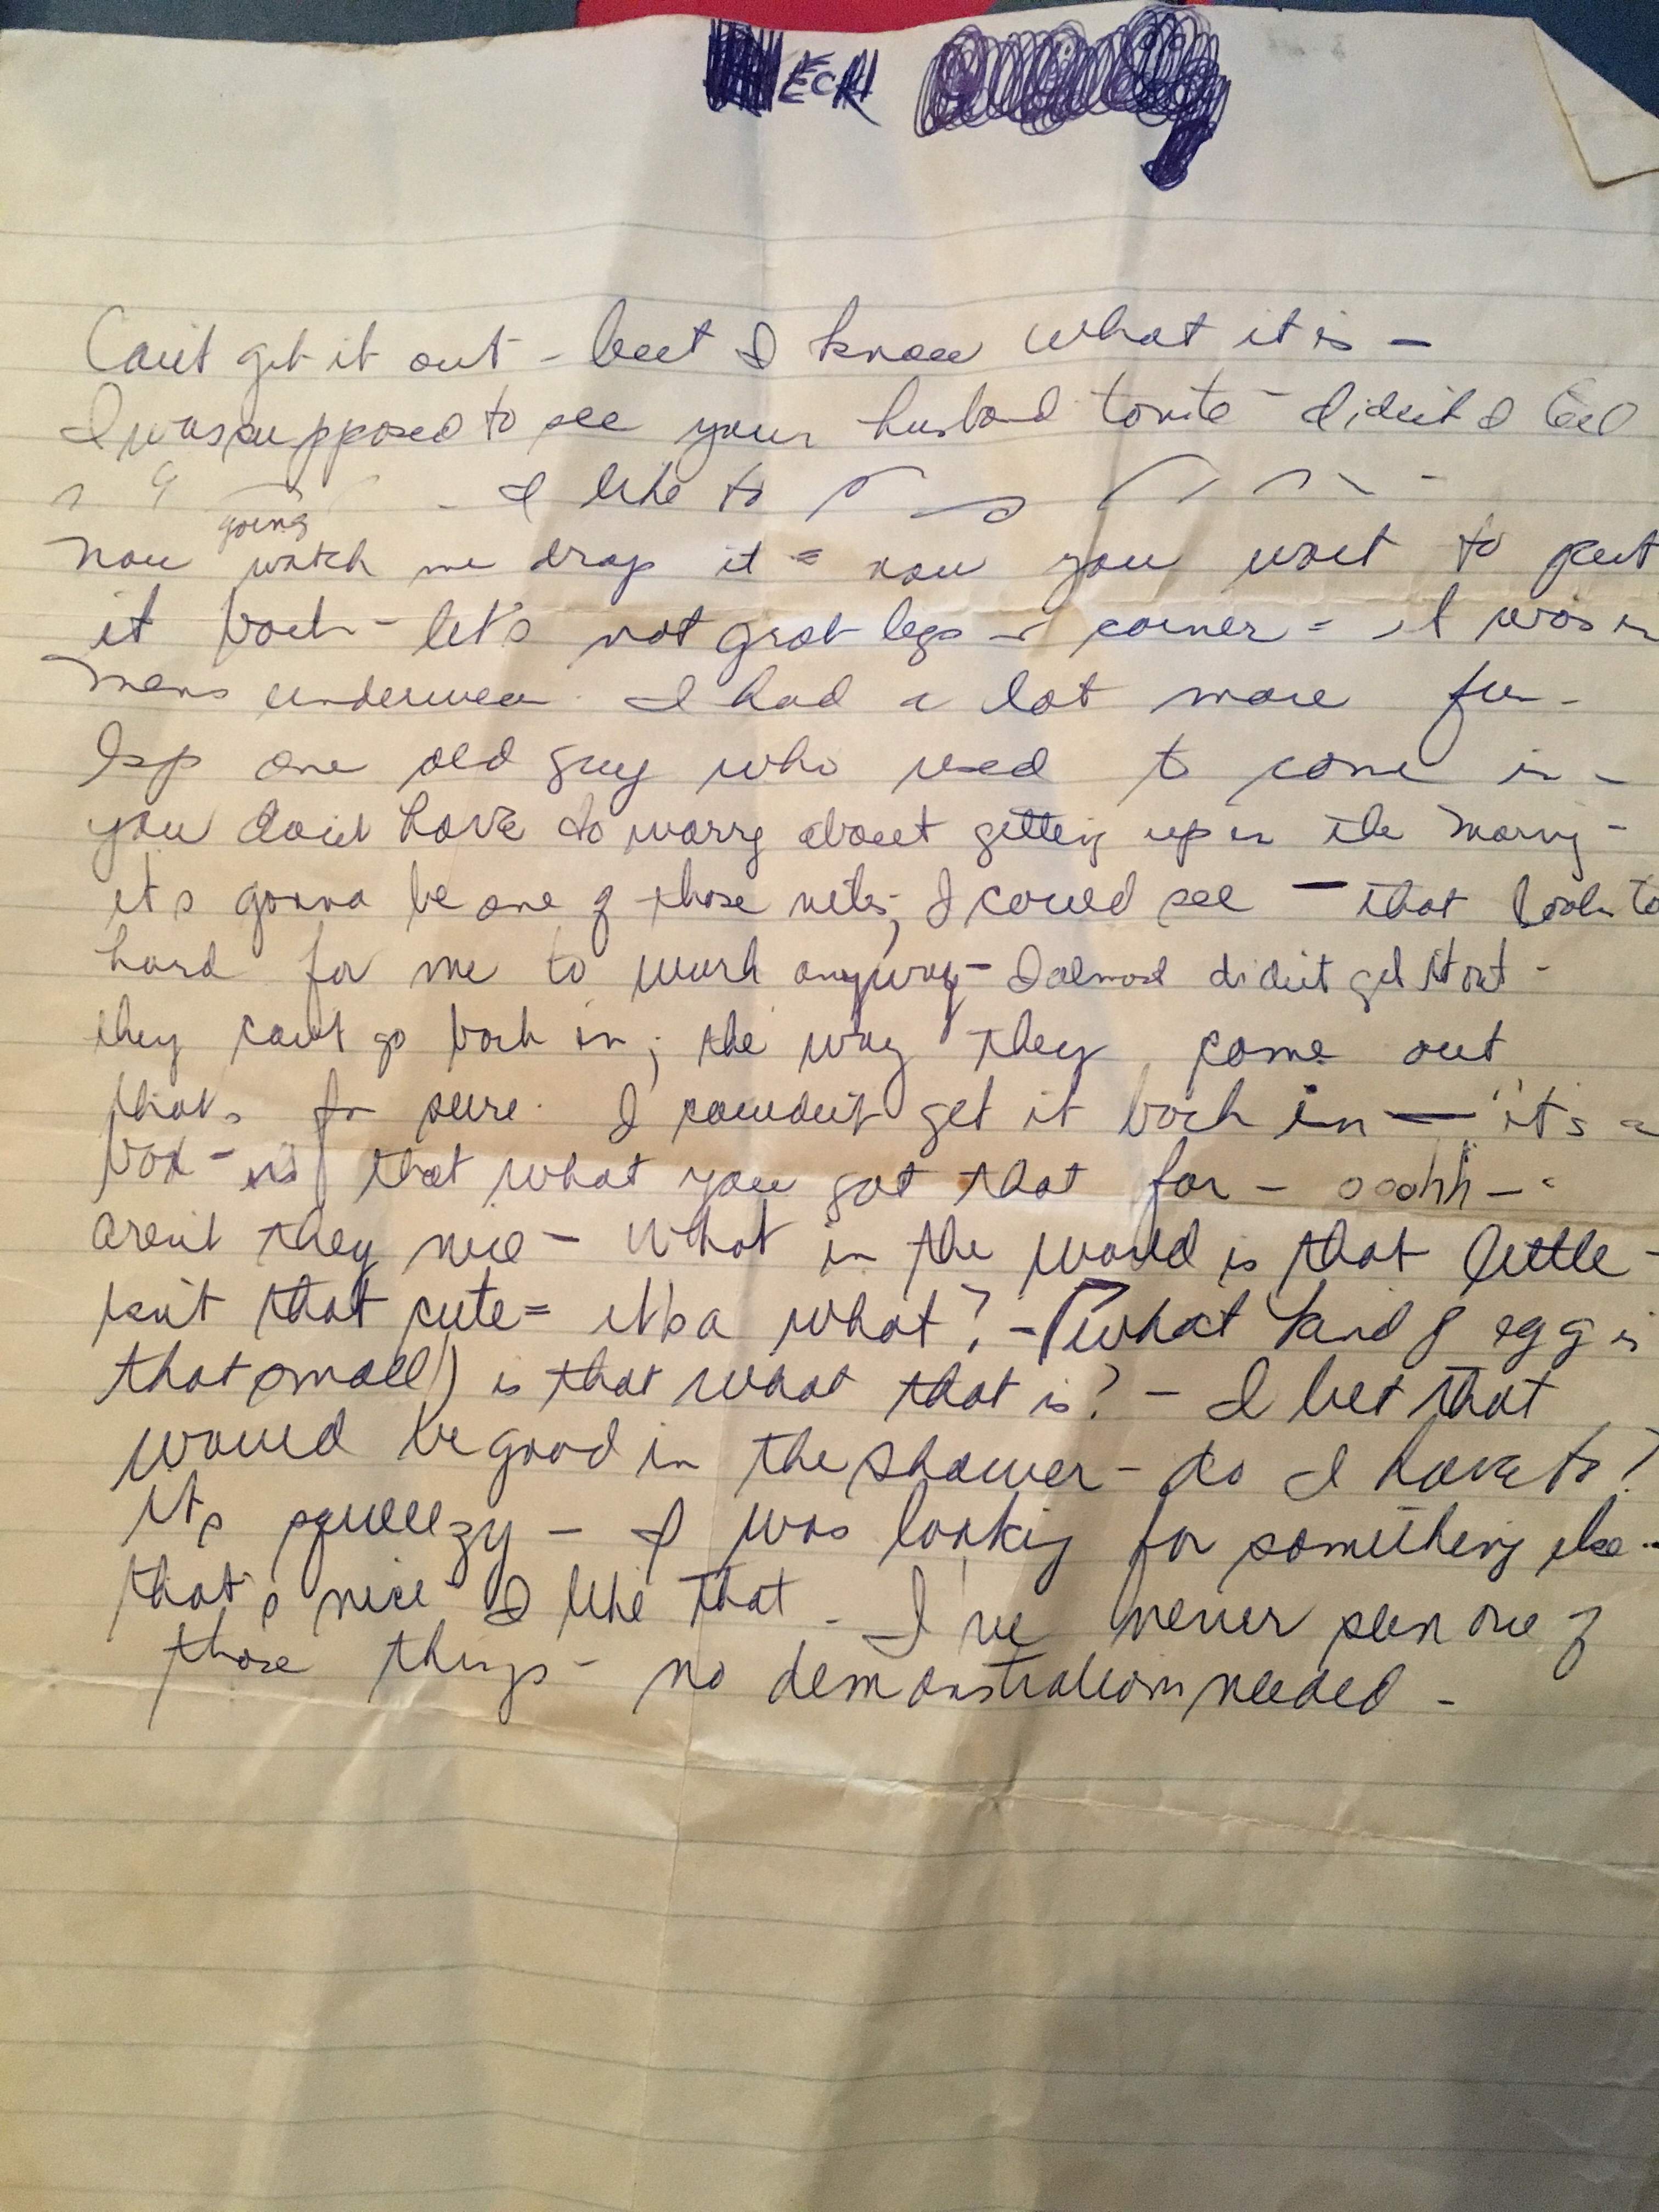 Can't get it out - but I know what it is -
I was supposed to see your husband tonite - didn't I tell
- I like to
now going watch me drop it = now you want to put
it back - let's not grab legs corner = I was in
mens underwear. I had a lot more fun -
Esp one old guy who used to come in -
you don't have to worry about getting up in the morning -
it's gonna be one of those nites, I could see - that looks to
hard for me to work anyway - I almost didn't get it out -
they can't go back in; the way they come out
thats for sure. I couldn't get it back in — it's a
box - is that what you got that for - ooohh - -
aren't they nice - What in the world is that little -
isn't that cute = it's a what? - (what kind of egg is
that small) is that what that is? - I bet that
would be good in the shower - do I have to?
it's squeezy - I was looking for something else -
that's nice I like that - I've never seen one of
those things - no demonstrations needed -